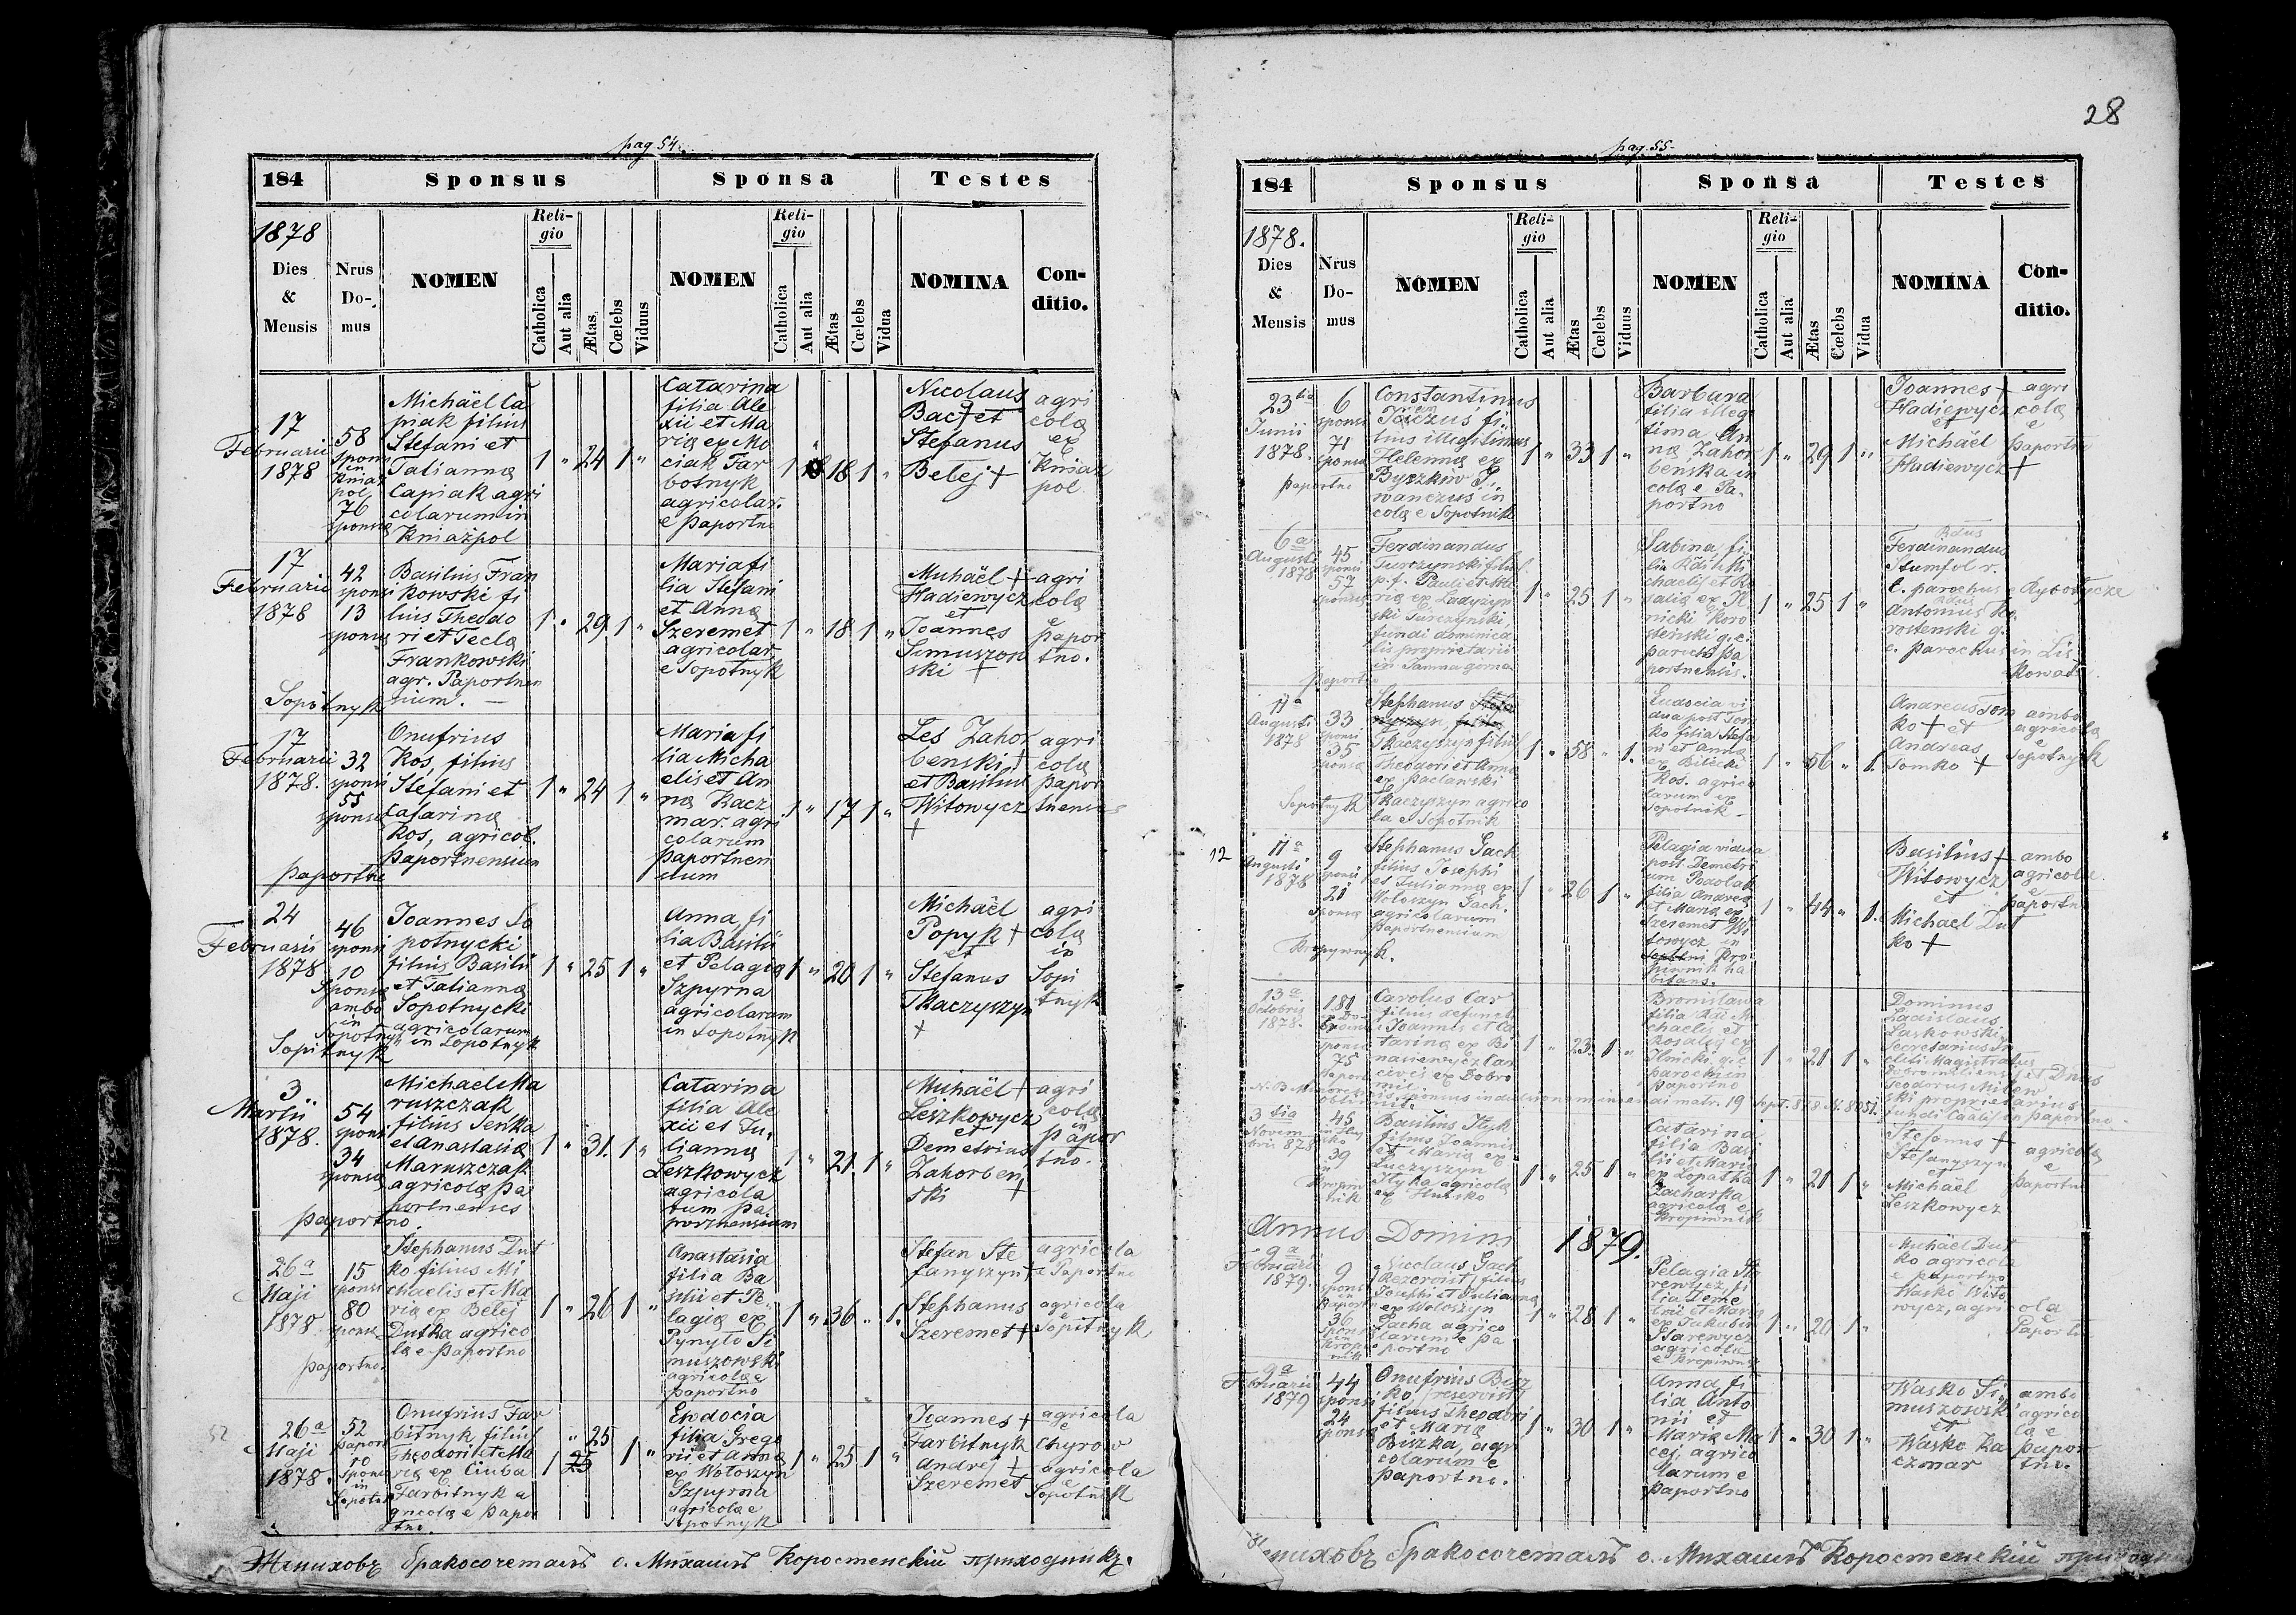 28
pag 54.
184 Sponsus Sponsa Testes
1878
Dies & Mensis
Nrus Do- mus
NOMEN
Reli- gio
Catholica
Aut alia
Ætas,
Cœlebs
Viduus
NOMEN
Reli- gio
Catholica
Aut alia
Ætas
Cœlebs
Vidua
NOMINA
Con- ditio.
17
Februarii
1878
58
sponsi
in
Kniaz
pol
76
sponsæ
Michaël Ca
piak filius
Stefani et
Tatianna
Capiak agri
colarum in
Kniażpol
1 " 24 1 "
Catarina
filia Ale
xii et Ma
ria ex Mo
ciak Far
botnyk
agricolar.
e Paportno
1 18 1 "
Nicolaus
Bac + et
Stefanus
Belej +
agri
colæ
ex
Kniaz
pol
17
Februarii
1878
42
sponsi
13
sponsæ
Basilius Fran
kowski fi
lius Theodo
ri et Tecla
Frankowski
agr. Paportnen
sium.
Sopotnyk
1 " 29 1 "
Maria fi
lia Stefani
et Anna
Szeremet
agricolar.
e Sopotnyk
1 " 18 1 "
Muhäel +
Hadiewycz
et
Joannes
Simuszow
ski +
agri
colæ
e
Papor
tno.
17
Februarii
1878.
32
sponsi
55
sponsæ
Onufrius
Kos, filius
Stefani et
Catarina
Kos, agricol.
Paportnensium
Paportno
1 " 24 1 "
Maria fi
lia Micha
elis et An
na Kacz
mar. agri
colarum
Paportnen
sium
1 " 17 1 "
Les Zahor
benski +
et Basilius
Witowycz
+
agri
colæ
Papor
tnenses
24
Februarii
1878
46
sponsi
10
Sponsæ
ambo
in
Sopotnyk
Joannes So
potnycki
filius Basilii
et Tatianna
Sopotnycki
agricolarum
in Sopotnyk
Sopitnyk
1 " 25 1 "
Anna fi
lia Basilii
et Pelagia
Szpyrna
agricolarum
in Sopotnyk
1 " 20 1 "
Michaël
Popyk +
et
Stefanus
Tkaczyszyn
+
agri
colæ
in
Sopi
tnyk
3
Martii
1878.
54
sponsi
34
sponsæ
Michael Ma
ruszczak
filius Senka
et Anastasia
Maruszczak
agricolæ Pa
portnenses
Paportno
1 " 31. 1 "
Catarina
filia Ale
xii et Ju
lianna
Leszkowycz
agricola
rum Pa
portnensium
1 " 21. 1 "
Muhaël +
Leszkowycz
et
Demetrius
Zahorben
ski +
agri
colæ
in
Papor
tno.
26a
Maji
1878
15
sponsi
80
sponsæ
Stephanus Dut
ko filius Mi
chaelis et Ma
ria ex Belej
Dutka agrico
læ e Paportno
Paportno
1 " 26 1 "
Anastasia
filia Ba
silii et Pe
lagia ex
Pynyło Si
muszowski
agricolæ e
Paportno
1 " 36 " 1.
Stefan Ste
fanyszyn +
Stephanus
Szeremet +
agricola
e Paportno
agricola
e
Sopitnyk
52
26a
Maji
1878.
52
Paport
10
Sponsæ
in
Sopotn
Onufrius Far
bitnyk filius
Theodori et Ma
ria ex Ciuba
Farbitnyk a
gricolæ e Papor
tno.
1 25 " 25 1 "
Ewdocia
filia Grego
rii et Anna
ex Wołoszyn
Szpyrna
agricolæ e
Sopotnyk
1 " 25 1 "
Joannes +
Farbitnyk
Andrej +
Szeremet
agricola
e
Chyrow
agricola
e
Sopotnik
Жениховъ бракосочеталъ о. Михаилъ Коростенскій приходникъ.
pag. 55.
184 Sponsus Sponsa Testes
1878.
Dies & Mensis
Nrus Do- mus
NOMEN
Reli- gio
Catholica
Aut alia
Ætas
Cœlebs
Viduus
NOMEN
Reli- gio
Catholica
Aut alia
Ætas
Cœlebs
Vidua
NOMINA
Con- ditio.
23tia
Junii
1878.
Paportno
6
sponsi
71
sponsæ
Constantinus
fi.
lius illegitimus
Helenna ex
Byrzkow
wanczus in
cola e Sopotnik
1 " 33 1 "
Barbara
filia illeg
tima An
na Zahor
benska in
cola e Pa.
portno
1 " 29 1 "
Joannes +
Hadiewycz
et
Michaël
Hadiewycz +
agri
colæ
e
Paportno
6a
Augusti
1878
Paportno
45
sponsi
57
sponsæ
Ferdinandus
Turczynski filius
p. f. Pauli et Ma
ria ex Ladyżyn
ski Turczynski,
fundi dominica
lis proprietarii
in Tamna gorna
1 " 25 1 "
Sabina, fi
lia Rdi Mi
chaelis et Ro
salia ex Il
nicki Koro
stenski g. c.
parochi Pa
portnensis.
1 " 25 1 "
Rdus
Ferdinandus
Stumfol r.
l. parochus e Rybotycze
Rdus
Antonius Ko
rostenski g.
c. parochus in Lis
kowate
11a
Augusti
1878
33
sponsi
35
sponsæ
Stephanus
Tkaczyszyn filius
Theodori et Anna
ex Paclawski
Tkaczyszyn agrico
la e Sopotnik
Sopotnyk
1 " 58 " 1.
Eudocia vi
dua post Tom
ko filia Stefa
ni et Anna
ex Bilecki
Kos. agrico
larum ex
Sopotnik
1 " 56 " 1.
Andreas Tom
ko + et
Andreas
Tomko +
ambo
agricolæ
e
Sopotnyk
12
11a
Augusti
1878
9
sponsi
21
Sponsæ
Stephanus Gach
filius Josephi
et Julianna ex
Wołoszyn Gach.
agricolarum
Paportnensium
Kropywnyk.
1 " 26 1 "
Pelagia vidua
post Demetri
um Powlak
filia Andrea
et Maria ex
Szeremet Wi
towycz in
Kro
piwnik ha
bitans.
1 " 44 " 1.
Basilius +
Witowycz
et
Michael Dut
ko +
ambo
agricolæ
e
Paportno
13a
Octobris
1878.
181
Do-
bromil
sponsi
75
Paport
Carolus Car
filius defuncti
Joannis et Ca
tarina ex Bi
nasiewycz Car
civis ex Dobro
mil
1 " 23. 1 "
Bronislawa
filia Rdi Mi
chaelis et
Rosalia ex
Ilnicki g. c.
parochi in
Paportno
1 " 21 1 "
Dominus
Ladislaus
Laskowski,
Secretarius In
cliti Magistratus
Dobromiliensis et Dnus
Teodorus Milow
ski proprietarius
fundi ex Paportno
N. B. Minorennis sponsus indultionem ineundi matr. 19 Sept. 878 N. 8051.
obtinuit
3tia
Novem
bris 878
45
in Hus
ko
39
in
Kropiw
nik
Basilius Hyk
filius Joannis
et Maria ex
Luczyszyn
Hyka agricolæ
ex Huisko
1 " 25 1 "
Catarina
filia Basi
lii et Maria
ex Łopatka
Zacharka
agricolæ e
Kropiwnik
1 " 21 1 "
Stefanus +
Stefanyszyn
et
Michaël
Leszkowycz
agricolæ
e
Paportno
Annus Domini 1879.
9a
Februarii
1879.
9
sponsi
in
Paportn
36
sponsæ
in
Kropiw
nik
Nicolaus Gach
Rezerwist, filius
Josephi et Julianna
ex Wołoszyn
Gacha agrico
larum e Pa
portno
1 " 28 1 "
Pelagia Sta
rewycz, fi
lia Deme
trii et Maria
ex Jakubin
Starewycz
agricolæ
e Kropiwnik
1 " 20 1 "
Muhäel Dut
ko agricola
e Paportno
Wasko Wito
wycz, agricola
e
Paportn
9a
Februarii
1879
44
sponsi
24
sponsæ
Onufrius Bisz
ko, reservist
filius Theodori
et Maria
Biszka, agri
colarum e
Paportno.
1 " 30 1 "
Anna fi
lia Anto
nii et
Maria Ma
cej, agrico
larum e
Paportno
1 " 30 1 "
Wasko Si
muszowski
et
Wasko Ka
czmar
ambo
agrico
læ e
Papor
tno.
Жениховъ бракосочеталъ о. Михаилъ Коростенскій приходникъ